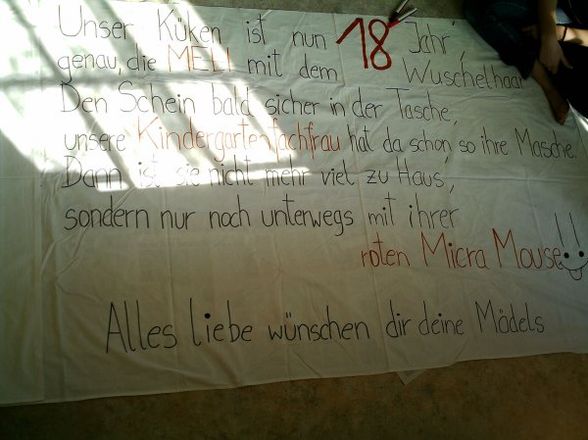 Unser Küken ist nun 18 Jahr',
genau, die MELI mit dem Wuschelhaar.
Den Schein bald sicher in der Tasche,
unsere Kindergartenfachfrau hat da schon so ihre Masche.
Dann ist sie nicht mehr viel zu Haus',
sondern nur noch unterwegs mit ihrer
roten Micra Mouse!!
Alles liebe wünschen dir deine Mädels